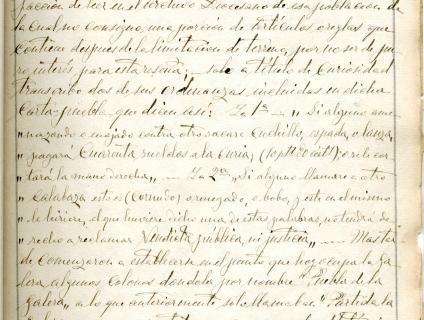 facción de leer en el archivo Diocesano de esa poblacion, de
la cual no consigno, una porción de artículos o reglas que
contiene despues de la limitacion de termino, por no ser de pu-
ro interés para esta reseña; solo a título de Curiosidad
transcribo dos de sus ordenanzas incluidas en dicha
Carta-puebla que dicen así: La 1ª — "Si alguno ame-
nazando o enojado contra otro sacare Cuchillo, espada, o lanza,
"pagará Cuarenta sueldos a la Curia; o se le cor-
"tará la mano derecha", — La 2ª "Si alguno llamare a otro
"Calabaza esto es (Cornudo) o renegado, o bobo, y este en el mismo
le hiriere, el que hubiere dicho una de estas palabras, no tendrá de-
"recho a reclamar Vindicta pública, ni justicia" —
de Comenzaron a establecerse en el punto que hoy ocupa la Za-
lera, algunos Colonos dandola por nombre "Puebla de la
Zalera" a lo que anteriormente solo llamaban "Partida la